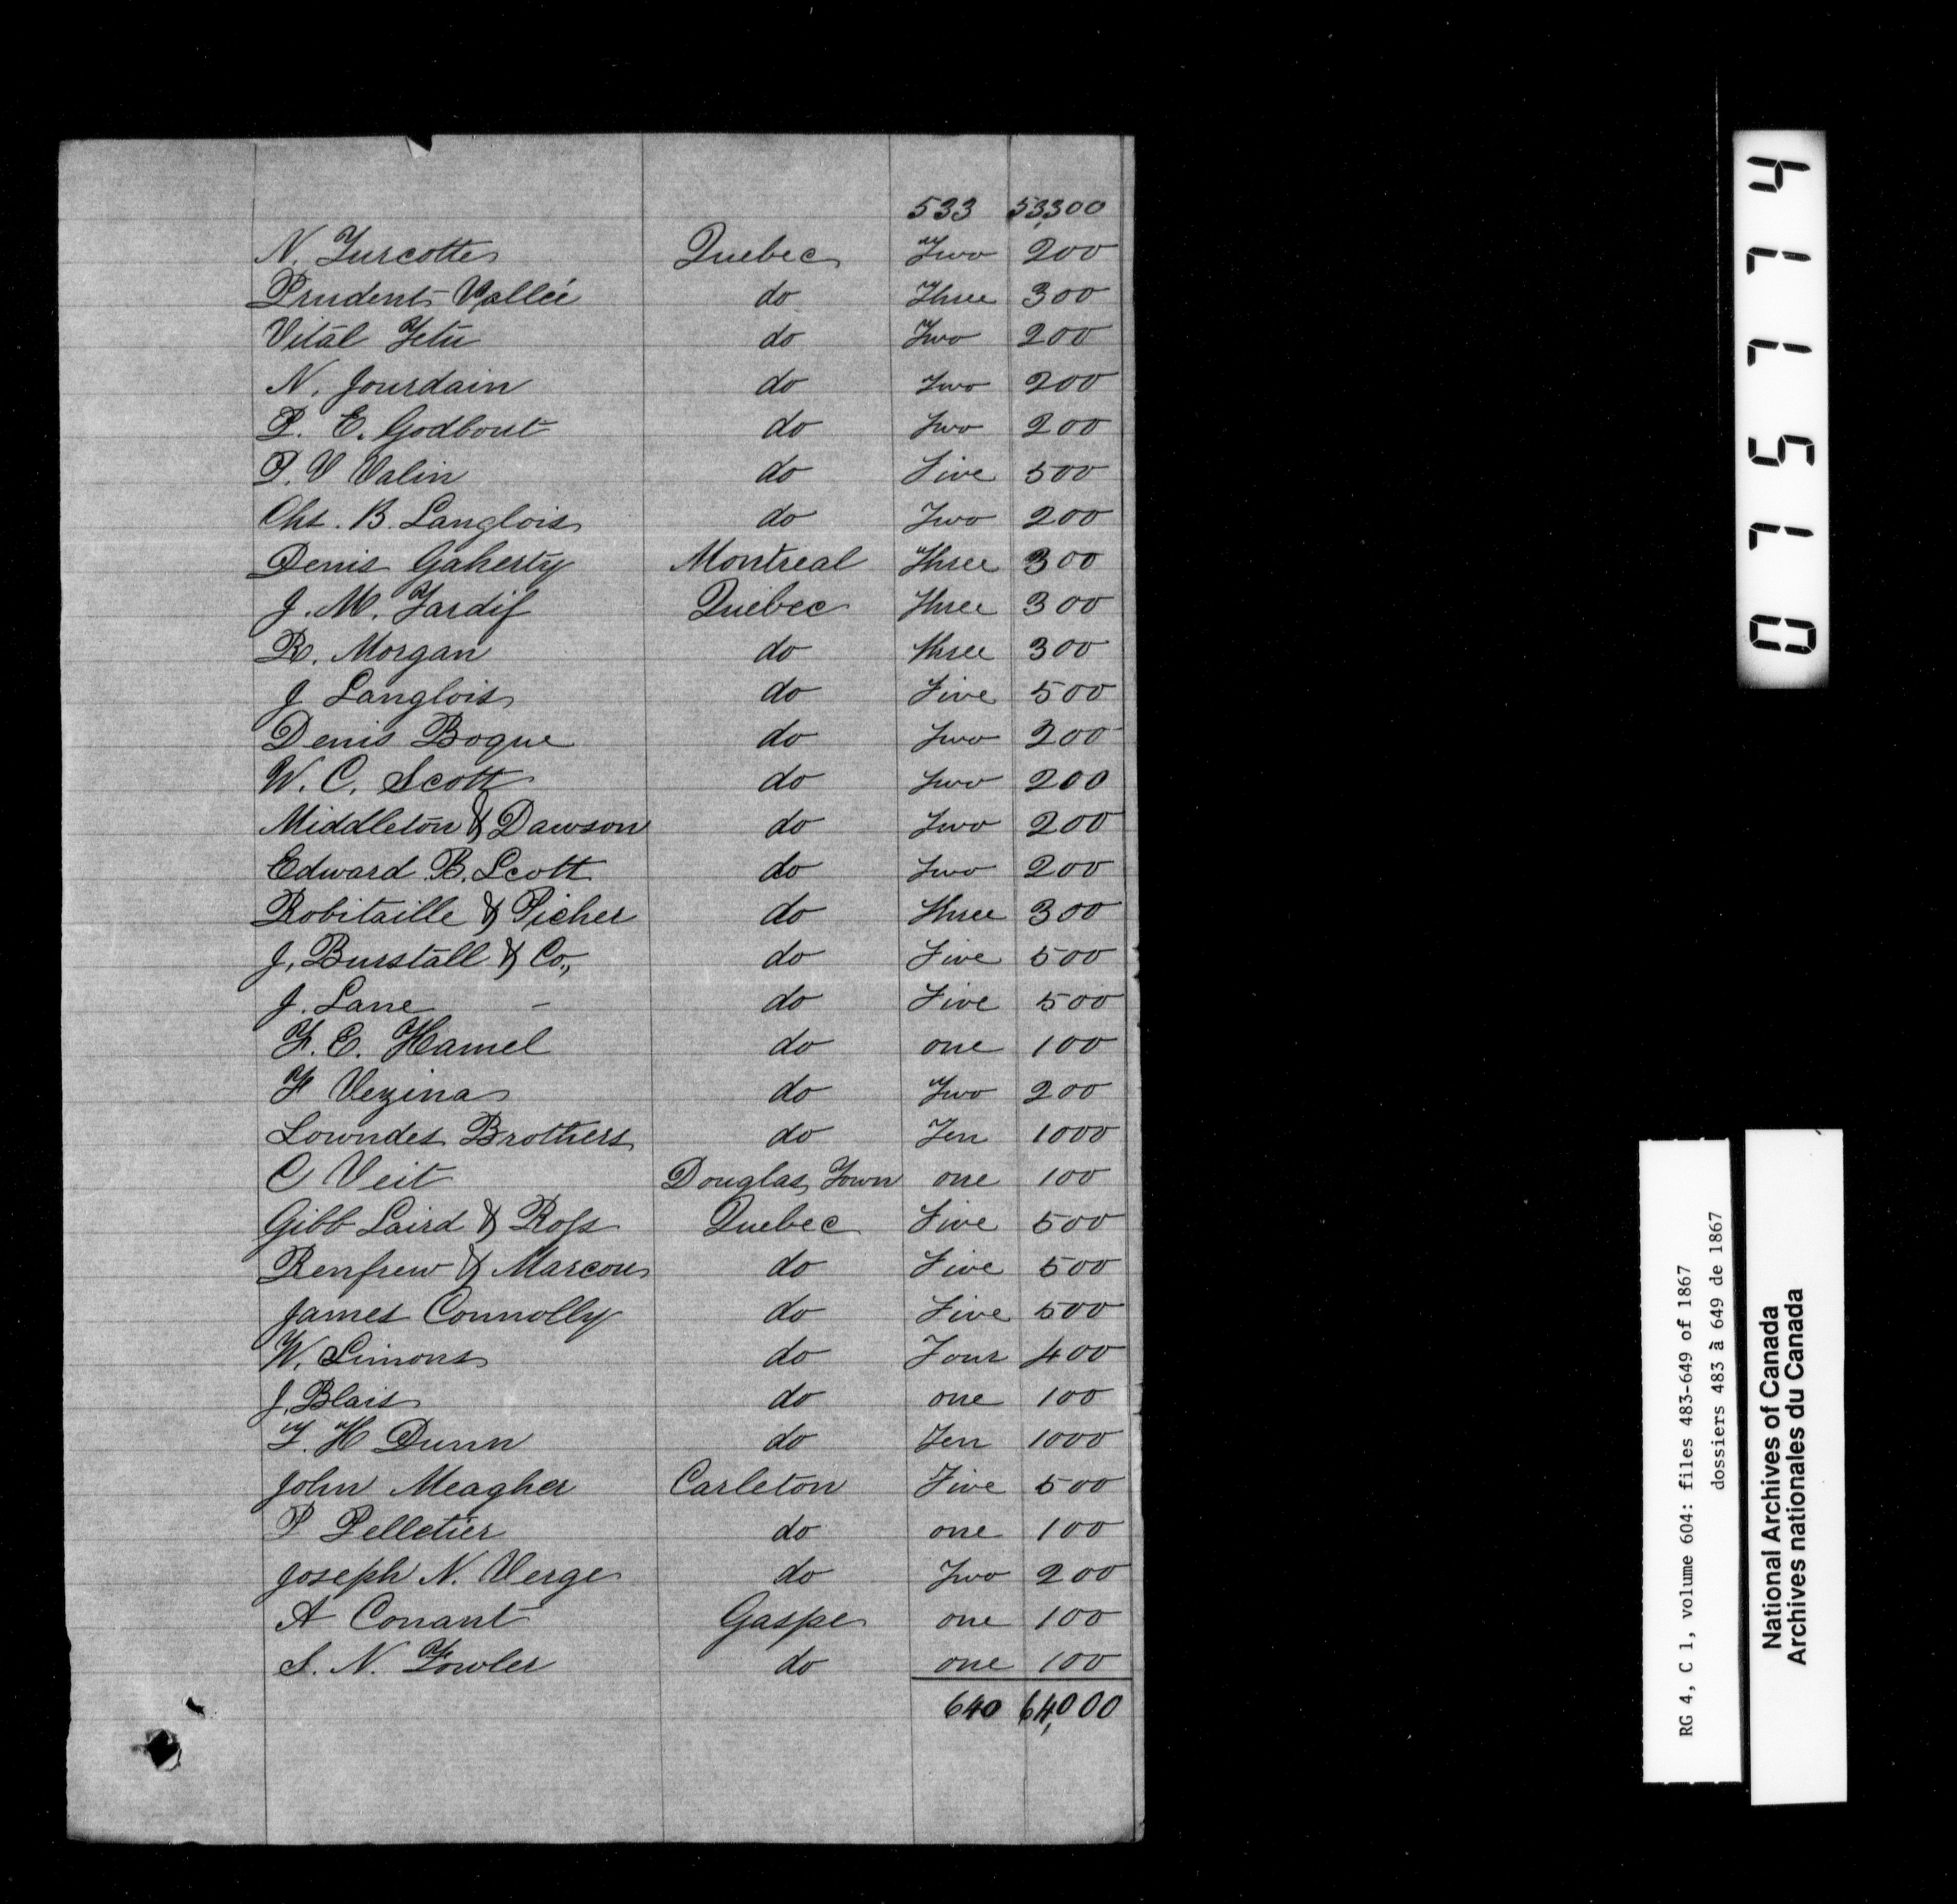 533 53,300
N. Turcotte Quebec Two 200
Prudent Vallée do Three 300
Vital Tetu do Two 200
N. Jourdain do Two 200
P. E. Godbout do Two 200
P. V Valin do Five 500
Chs. B. Langlois do Two 200
Denis Gaherty Montreal Three 300
J. M. Tardif Quebec Three 300
R. Morgan do three 300
J Langlois do Five 500
Denis Bogue do Two 200
W. C. Scott do Two 200
Middleton & Dawson do Two 200
Edward B. Scott do Two 200
Robitaille & Picher do three 300
J. Burstall & Co., do Five 500
J. Lane - do Five 500
F. E. Hamel do one 100
F Vezina do Two 200
Lowndes Brothers do Ten 1000
C Veit Douglas Town one 100
Gibb Laird & Ross Quebec Five 500
Renfrew & Marcou do Five 500
James Connolly do Five 500
W. Simons do Four 400
J. Blais do one 100
T. H Dunn do Ten 1000
John Meagher Carleton Five 500
P Pelletier do one 100
Joseph N. Verge do Two 200
A Conant Gaspe one 100
S. N. Fowler do one 100
640 64,000
075774
RG 4, C 1, volume 604: files 483-649 of 1867
dossiers 483 à 649 de 1867
National Archives of Canada
Archives nationales du Canada